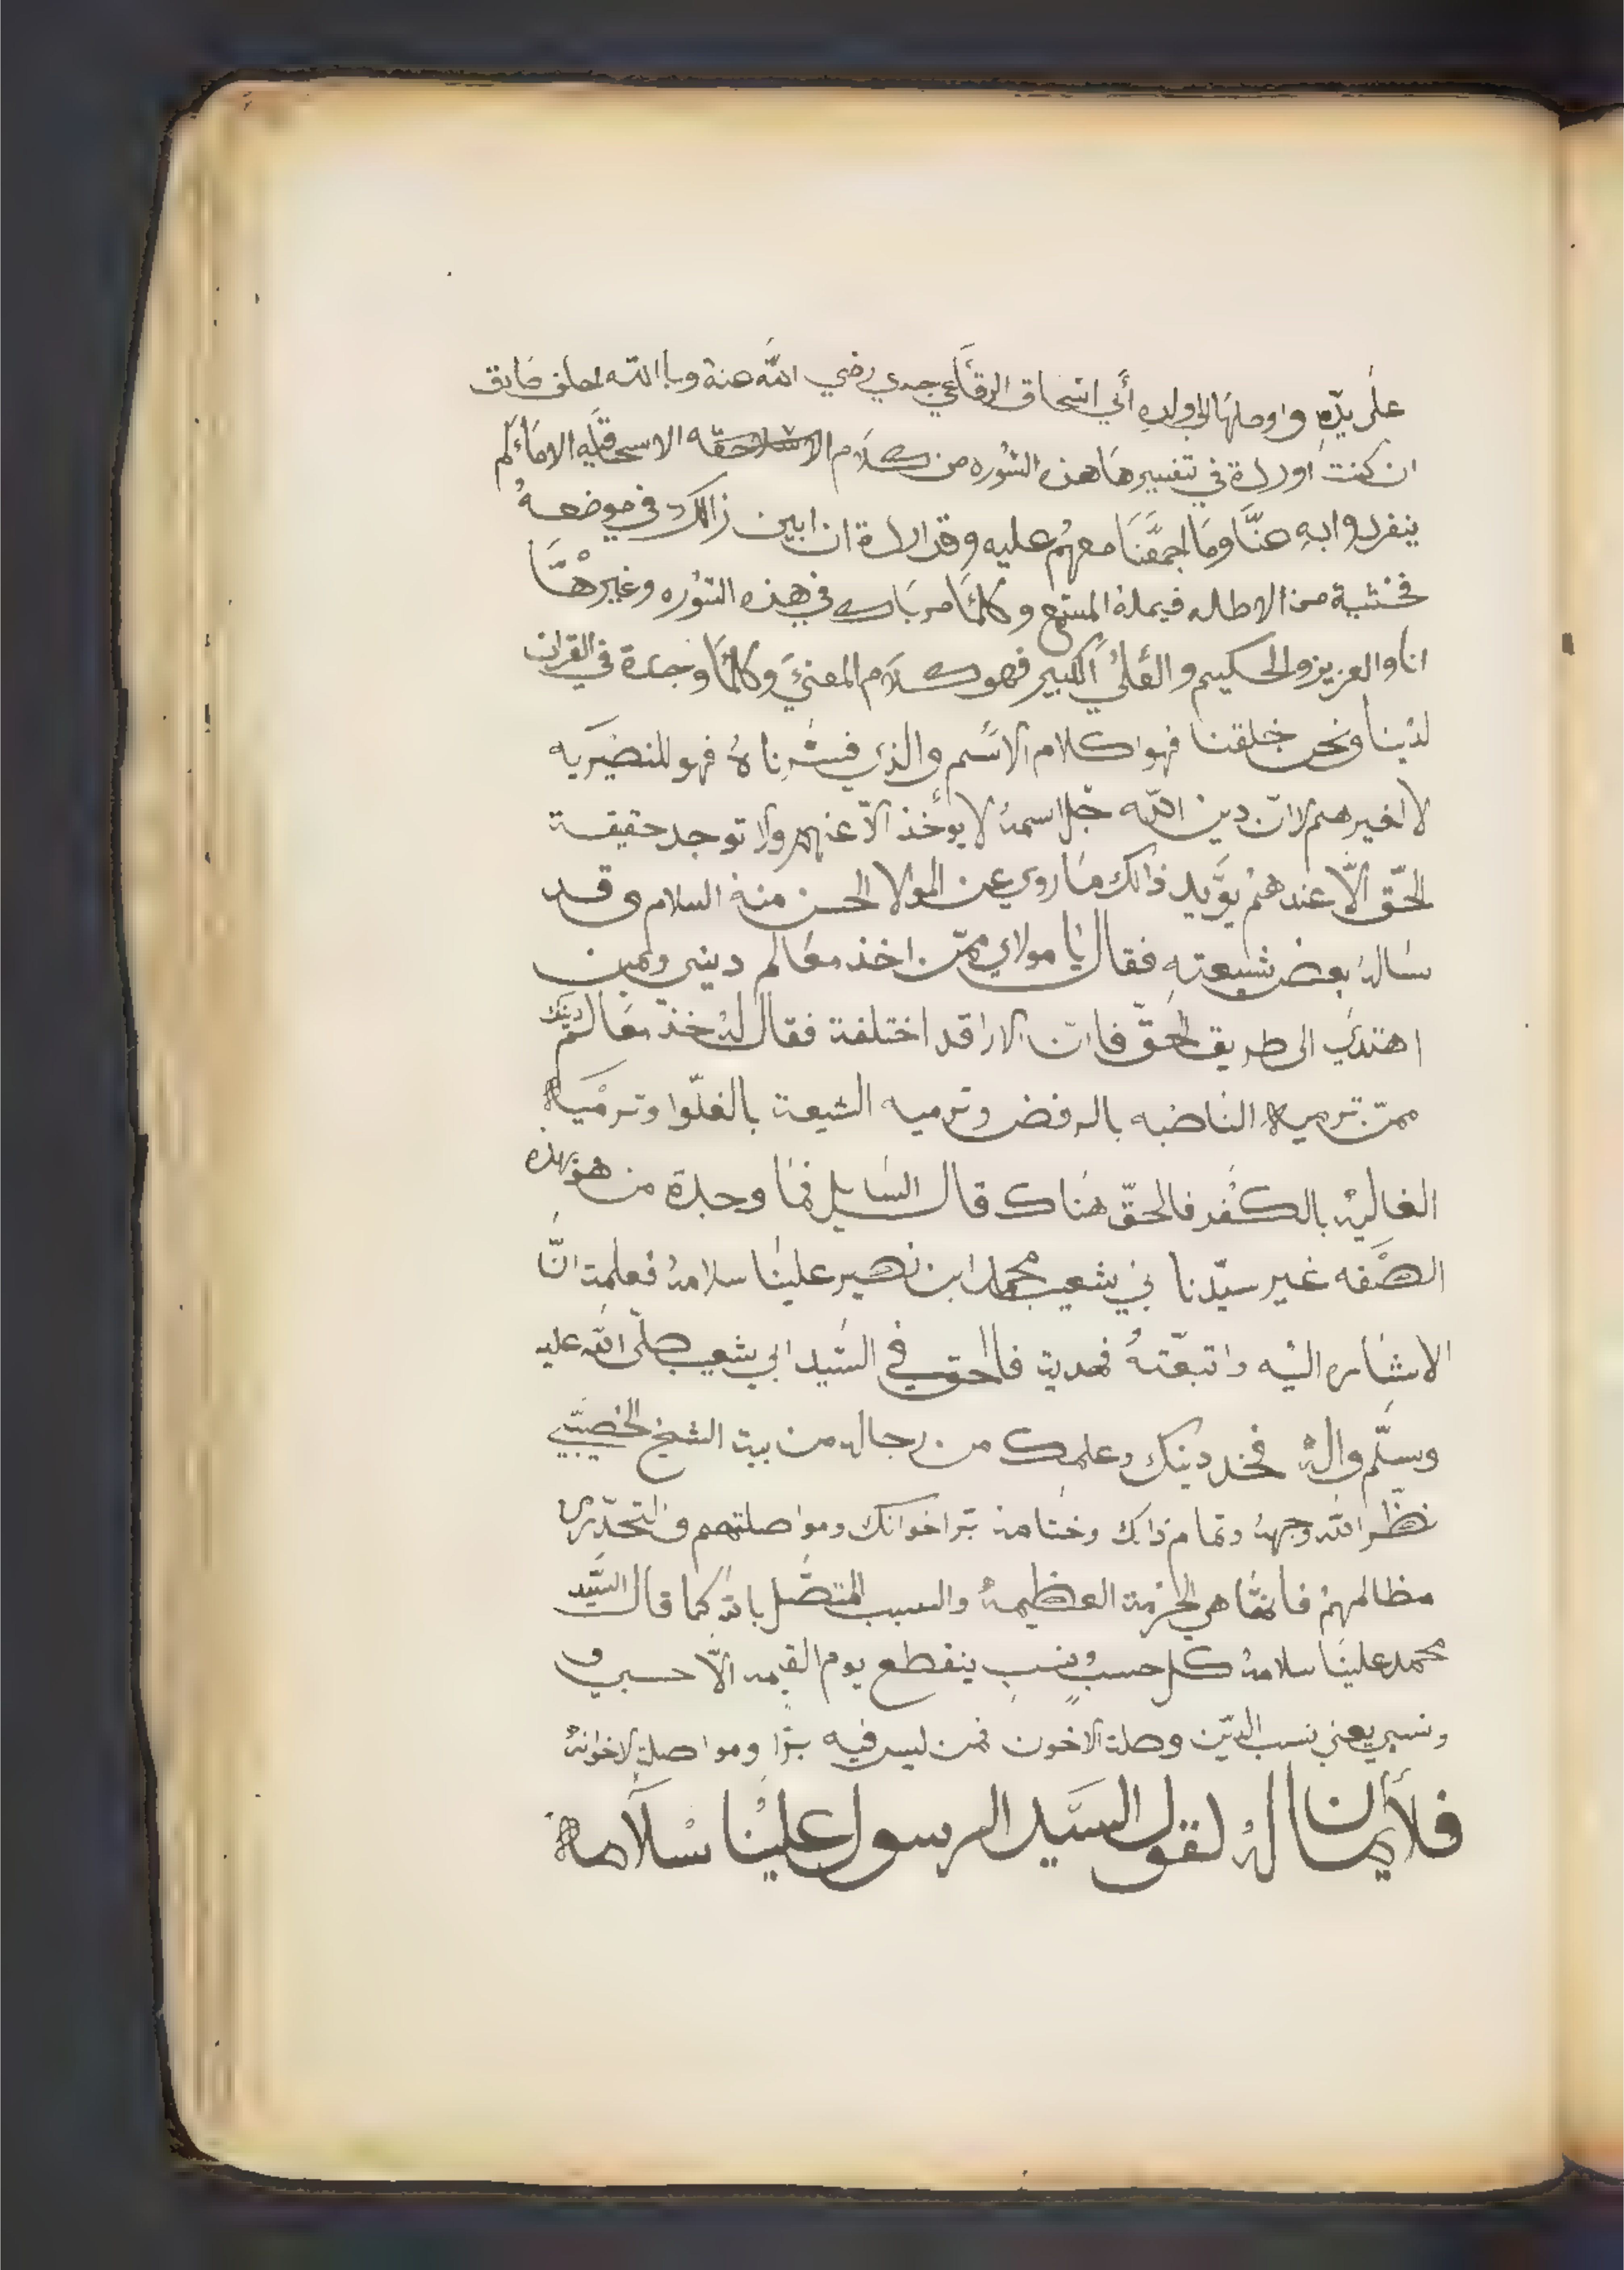 على يدّهِ واوصلهَا الى ولدِهِ أبي اسحاق الرقاعي جدي رضي اللّه عنهُ وباالله احلف صَادق
ان كنت اوردة في تفسير هَاهذه السُوره من كلَام الاسحاقيه الامَا لم
ينفردوا بهِ عنَّا ومَا اجمعَّنَا معهُم عليه وقد اردة ان ابين ذالك في موضعهُ
فخشية من الاطاله فيملهُ المستمع وكلمَا مر بَاك في هذه السُوره وغيرهَّا
انا والعزيز والحكيم والعَليُ الكبير فهو كلَام المعنىَ وكلمَا وجدَة في القران
لدْينا ونحن خلقنا فهوا كلام الاسَم والذي فسّرناهُ فهو للنصَيريه
لا لغيرهم لانّ دين اللّه جَل اسمهُ لا يوخَذ الّا عنهم ولا توجد حقيقة
الحّق الّا عندهمُ يوَّيد ذالك مَا روي عن المولا الحسن منهُ السلام وقد
سَالهُ بعض شيعتهِ فقال يَا مولاي ممّن اخذ معَالم ديني وبمن
اهتدي الى طريق الحقّ فاانّ الارا قد اختلفة فقال لهُ خذ معَالم دينك
ممّن ترميهِ الناصَبه بالرفض وترميه الشيعة بالغلّوا وترمْيَهُ
الغاليهْ بالكفْر فالحقّ هنَاك قال السَايل فمَا وجدة من هو بهذه
الصَفه غير سيّدنا بي شعيب محمد ابن نصير علينَا سلامهُ فعلمت انَّ
الاشَاره اليْه واتبعّتهُ فهديت فاالحق في السَيد ابي شعيب صلّى اللّه عليه
وسلّم والهُ فخد دينك وعلمك من رجاله من بيت الشيخ الخصَيبي
نظّر اللّه وجههُ وتمام ذالك وختَامهُ برّ اخوانك ومواصلتهم والتحذّر من
مظالمهمُ فانهَّا هي الحُرمة العظيمهُ والسبب المتصَّل بالله كما قال السَّيد
محمد علينَا سلامهُ كل حسبٍ ونسبٍ ينقطع يوم القيمه الّا حسبي و
ونسبي يعني نسب الديّن وصلة الاخون فمن ليس فيه برًا ومواصلة لاخوانهُ
فلا أيمَان لهُ لقول السَيَد الرسول علينْا سْلَامهُ